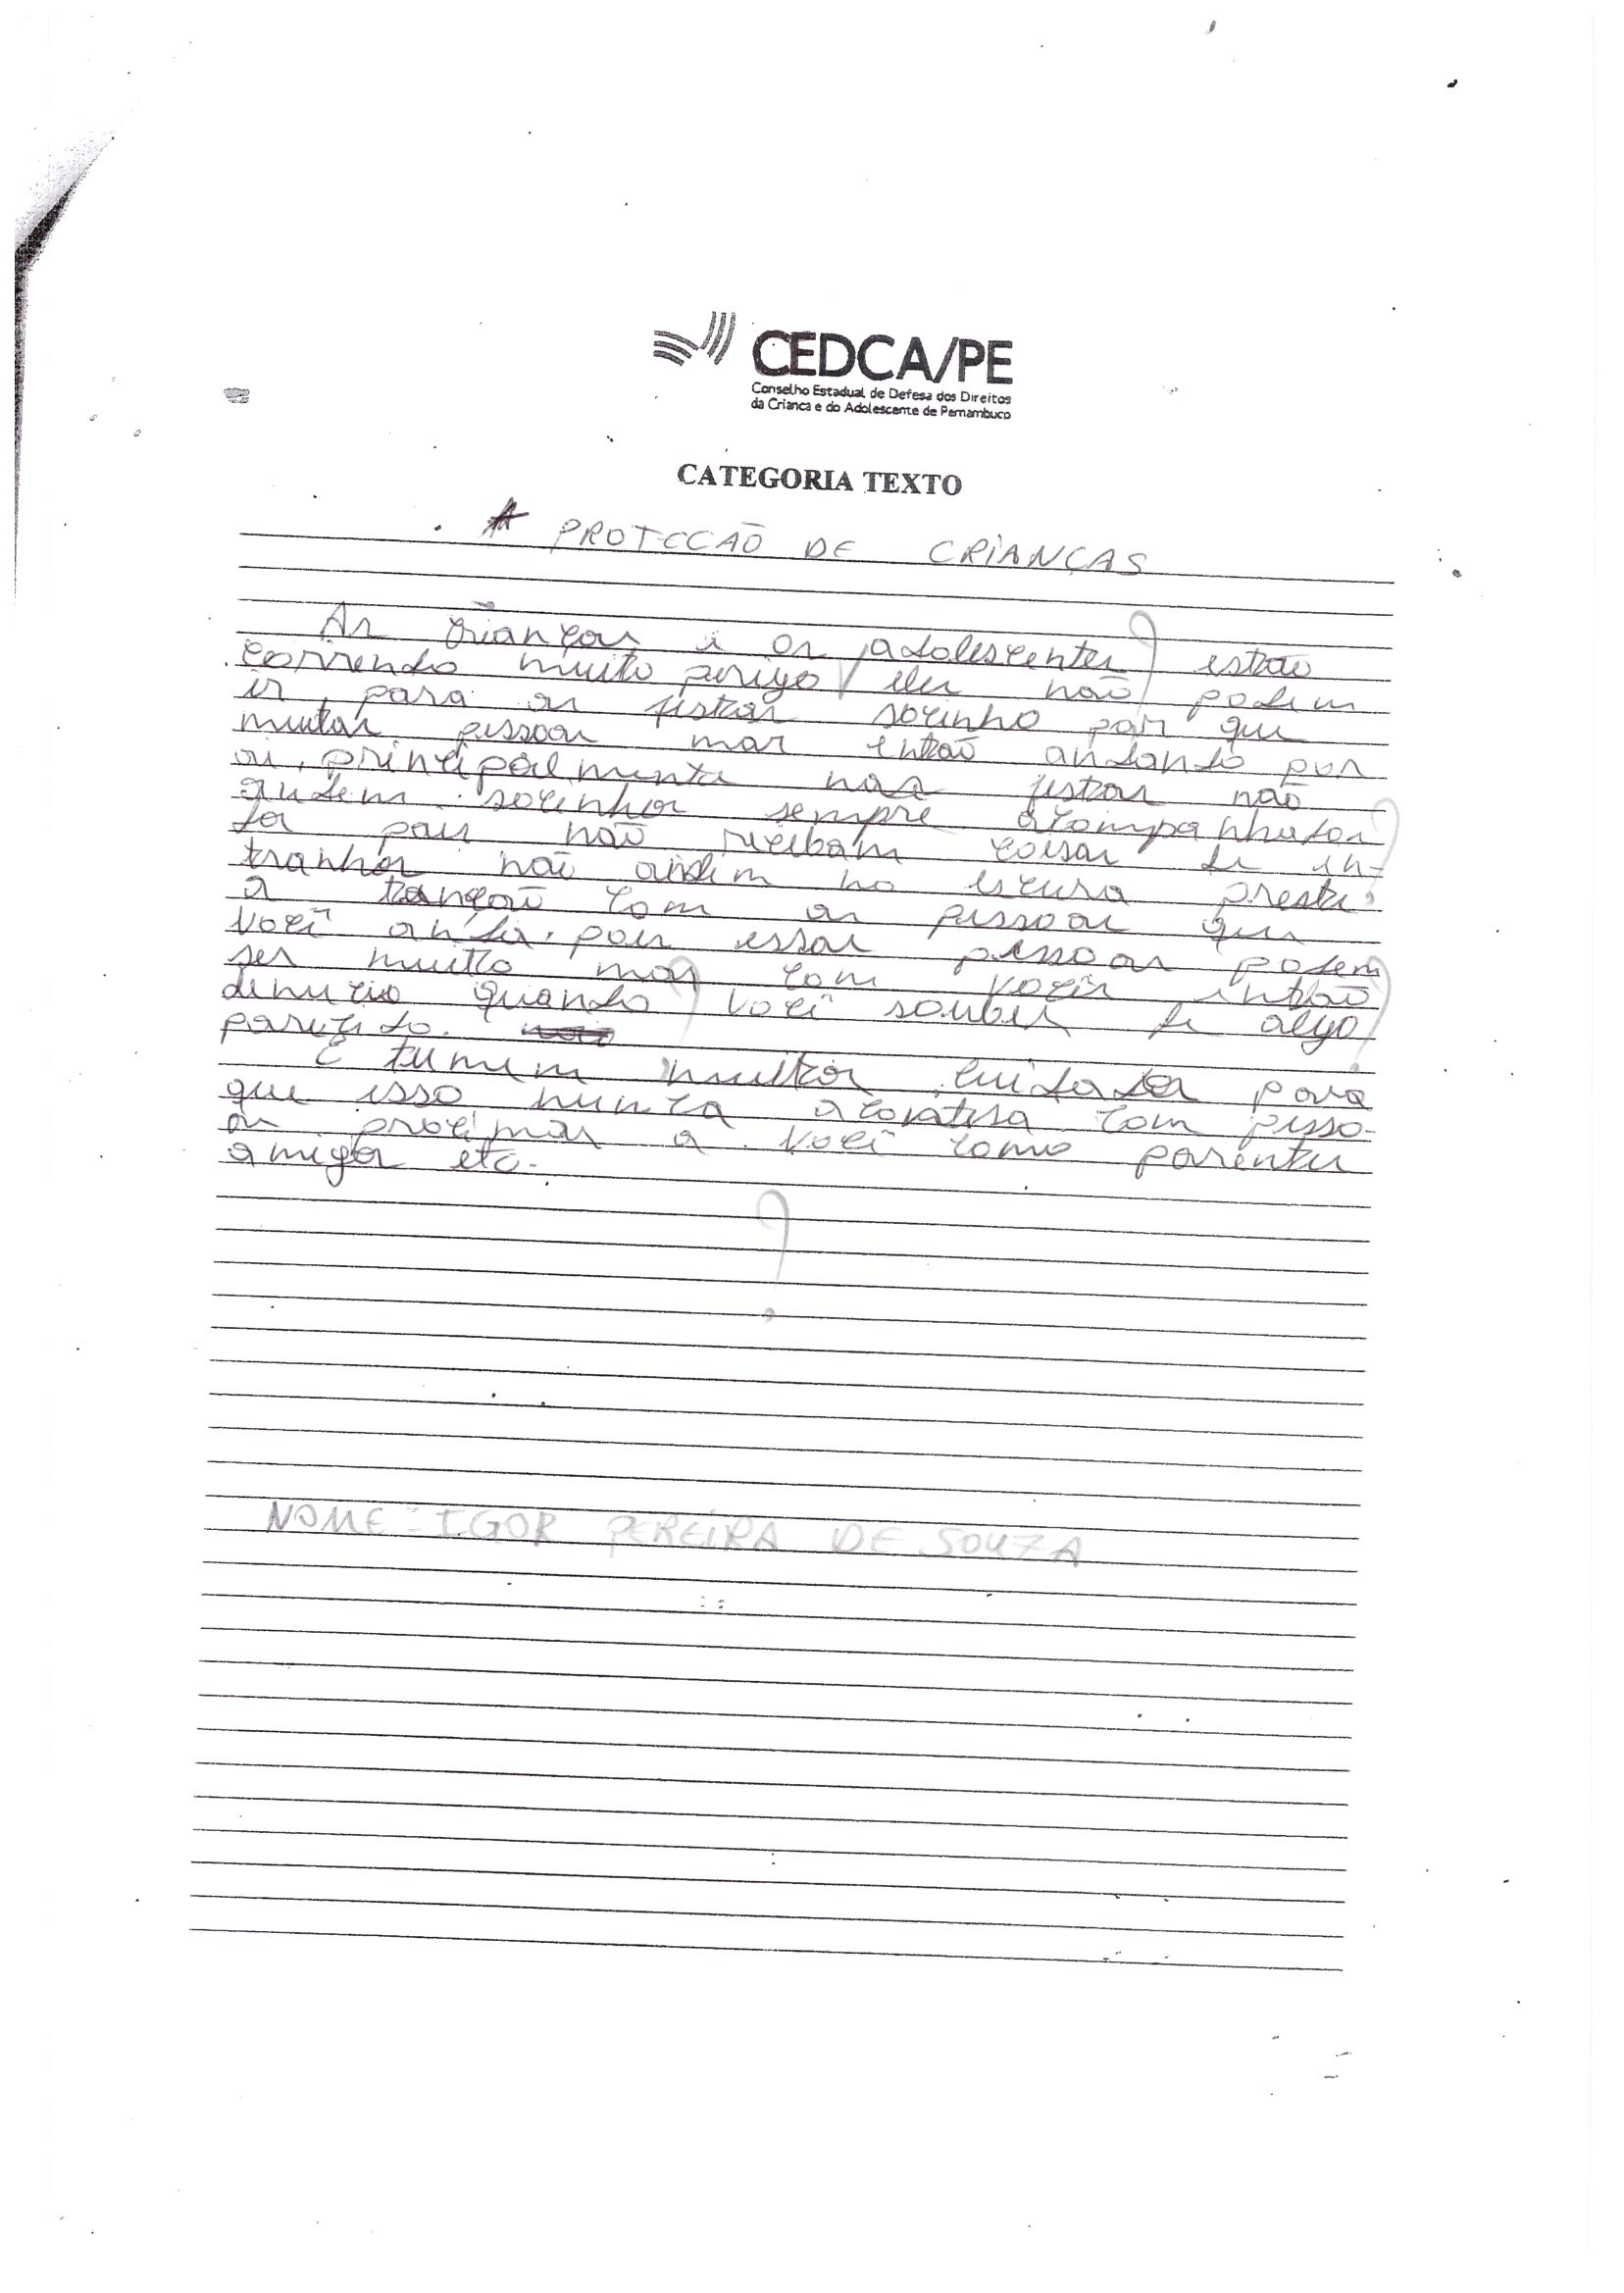 CEDCA/PE
Conselho Estadual de Defesa dos Direitos
da Crianca e do Adolescente de Pernambuco
CATEGORIA TEXTO
A PROTECCAÕ DE CRIANÇAS
As crianças e os adolescentes estão
correndo muito perigo eles não podem
ir para as festas sozinho por que
muitas pessoas mas então andando por
ai, principalmente nas festas não
andem sozinhos sempre acompanhados
dos pais não recibam coisas de in-
tranhos não andem no escuro preste
a tenção com as pessoas que
você anda, pois essas pessoas podem
ser muito mas com vocês então
denucio quando você souber de algo
parecido.
E tumem muitos cuidados para
que isso nunca aconteça com pesso-
as procimas a você como parentes
amigos etc.
?
NOME = IGOR PEREIRA DE SOUZA